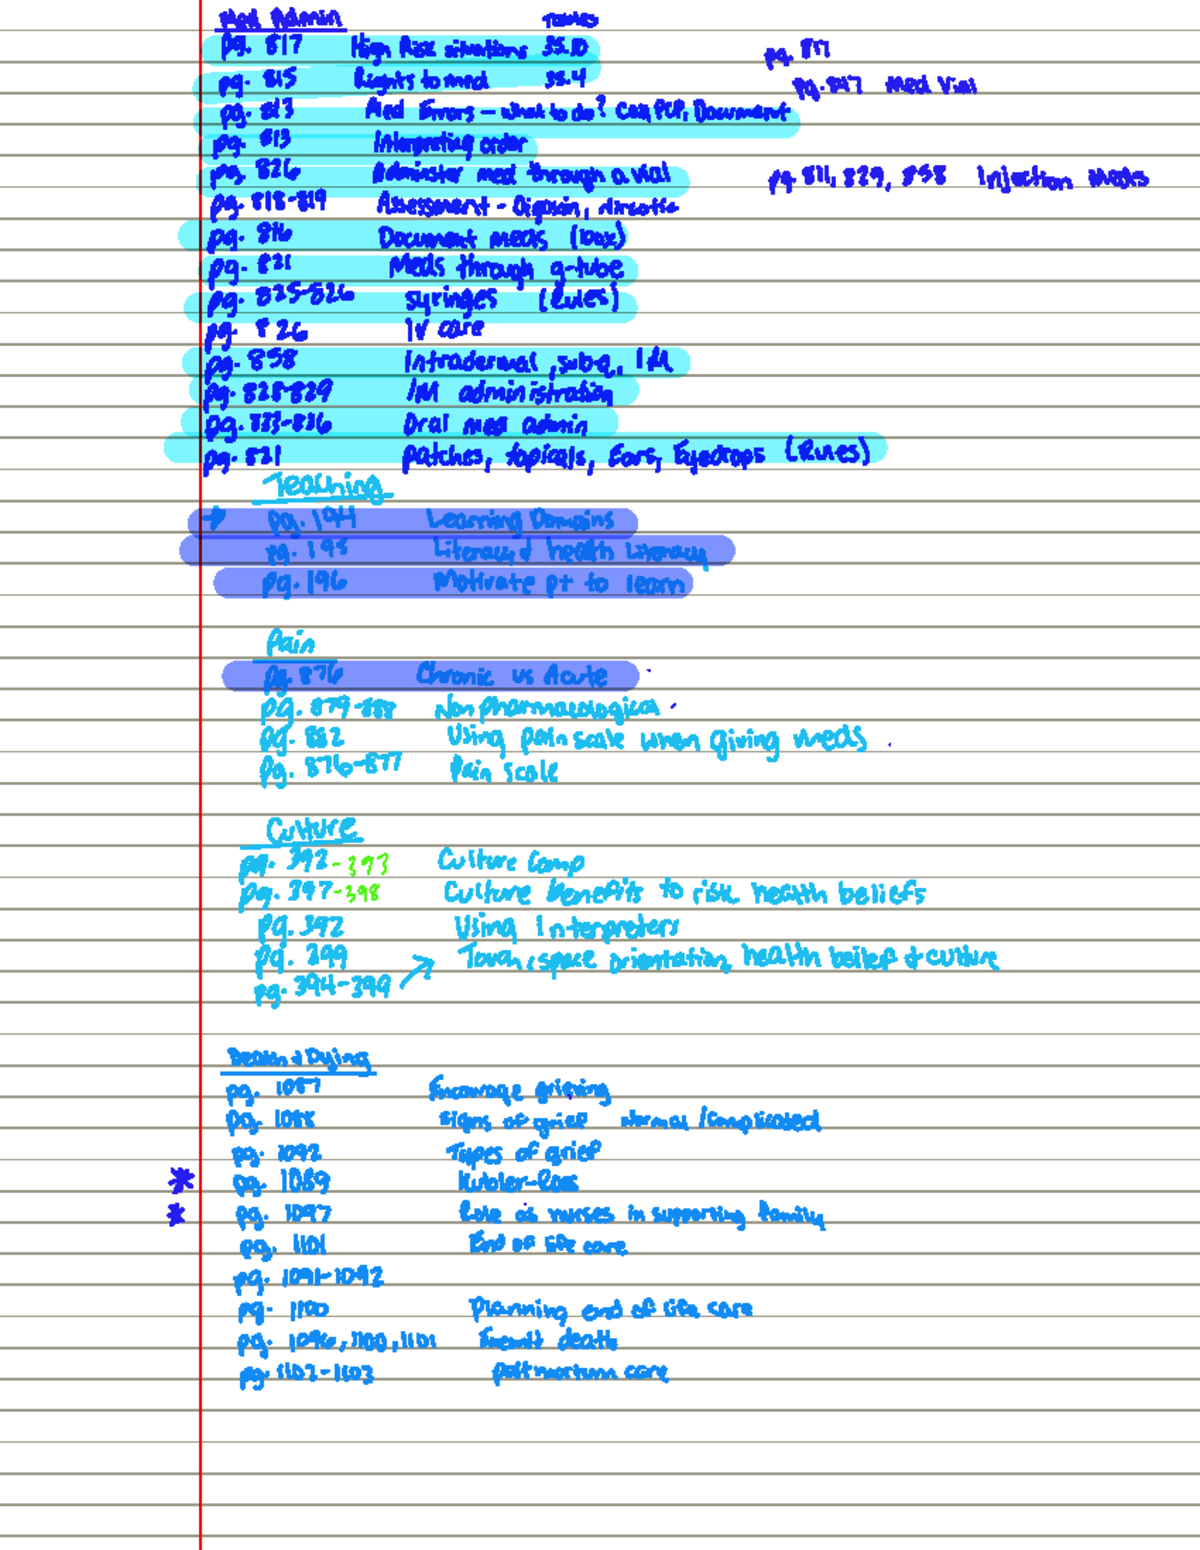 Med Admin Tables
pg. 817 High Risk situations 35.10
pg. 817
pg. 815 Rights to med 35.4
pg. 847 Med Vial
pg. 813 Med Errors - what to do? Call PCP, Document
pg. 813 Interpreting order
pg. 826 Adminster med through a vial
pg. 811, 829, 858 Injection Meds
pg. 818-819 Assessment - Digoxin, narcotic
pg. 816 Document meds (box)
pg. 821 Meds through g-tube
pg. 825-826 syringes (Rules)
pg. 826 IV care
pg. 858 Intradermal, subq, IM
pg. 828-829 IM administration
pg. 833-836 Oral med admin
pg. 821 patches, topicals, Ears, Eyedrops (Rules)
Teaching
→ pg. 194 Learning Domains
pg. 195 Literacy & health Literacy
pg. 196 Motivate pt to learn
Pain
pg. 876 Chronic vs Acute
pg. 879-888 Non pharmacological
pg. 882 Using pain scale when giving meds
pg. 876-877 Pain scale
Culture
pg. 392-393 Culture Comp
pg. 397-398 Culture benefits to risk health beliefs
pg. 392 Using Interpreters
pg. 399 Touch, space orientation, health belief & culture
pg. 394-399
Death & Dying
pg. 1087 Encourage grieving
pg. 1088 Signs of grief Normal/Complicated
pg. 1092 Types of grief
* pg. 1089 Kubler-Ross
* pg. 1097 Role as nurses in supporting family
pg. 1101 End of life care
pg. 1091-1092
pg. 1100 Planning end of life care
pg. 1096, 1100, 1101 death
pg. 1102-1103 postmortum care